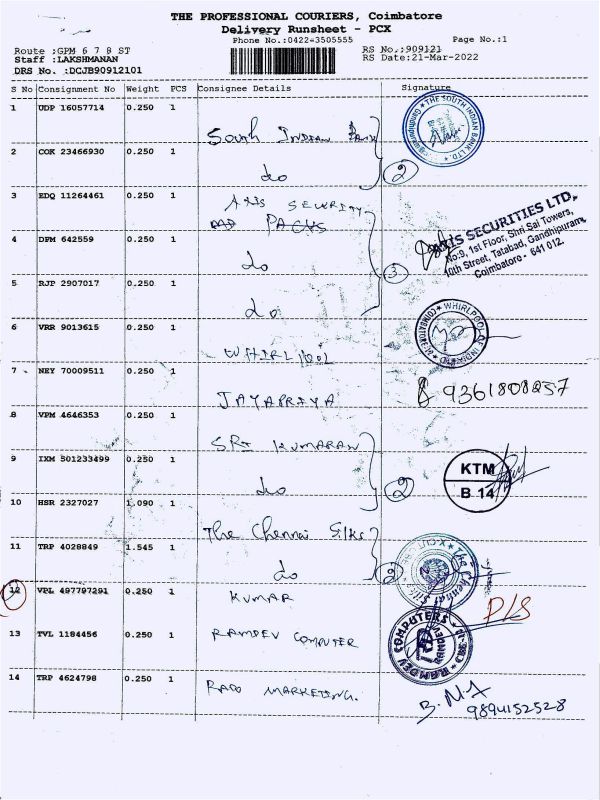 THE PROFESSIONAL COURIERS, Coimbatore
Delivery Runsheet - PCX
Phone No.:0422=3505555 Page No.:1
Route :GPM 6 7 8 ST RS No.:909121
Staff :LAKSHMANAN RS Date:21-Mar-2022
DRS No. :DCJB90912101
S No Consignment No Weight PCS Consignee Details Signature
1 UDP 16057714 0.250 1
South Indian Bank THE SOUTH INDIAN BANK LTD.
2 COK 23466930 0.250 1
do 2
3 EDQ 11264461 0.250 1
AXIS SECURITY
PACKS
AXIS SECURITIES LTD.,
No:9, 1st Floor, Shri Sai Towers,
10th Street, Tatabad, Gandhipuram,
Coimbatore - 641 012.
4 DFM 642559 0.250 1
do 3
5 RJP 2907017 0.250 1
do
6 VRR 9013615 0.250 1
WHIRLPOOL WHIRLPOOL OF INDIA COIMBATORE
7 NEY 70009511 0.250 1
JAYAPRIYA 9361808257
8 VPM 4646353 0.250 1
SRI KUMARAN
9 IXM 501233499 0.250 1
do 2 KTM
B 14
10 HSR 2327027 1.090 1
The Chennai Silks
11 TRP 4028849 1.545 1
do 2 The Chennai Silks
12 VPL 497797291 0.250 1
KUMAR D/S
13 TVL 1184456 0.250 1
RAMDEV COMPUTER RAMDEV COMPUTERS
14 TRP 4624798 0.250 1
RAOO MARKETING.
B. M.
9894152528